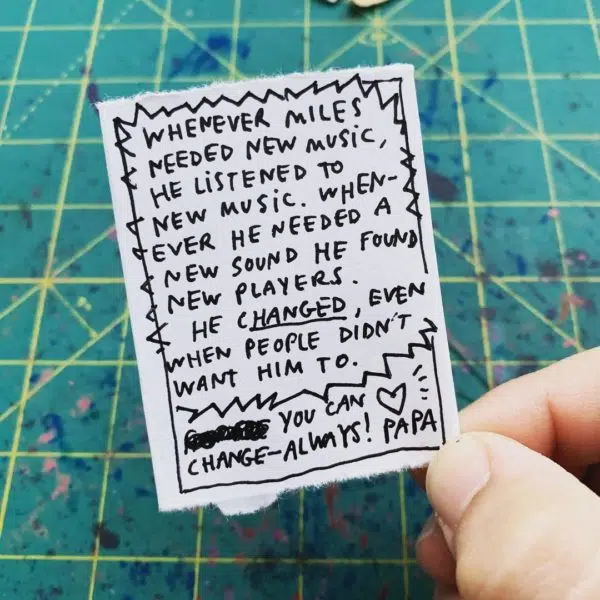 WHENEVER MILES
NEEDED NEW MUSIC,
HE LISTENED TO
NEW MUSIC. WHEN-
EVER HE NEEDED A
NEW SOUND HE FOUND
NEW PLAYERS.
HE CHANGED, EVEN
WHEN PEOPLE DIDN'T
WANT HIM TO.
YOU CAN
CHANGE—ALWAYS! PAPA